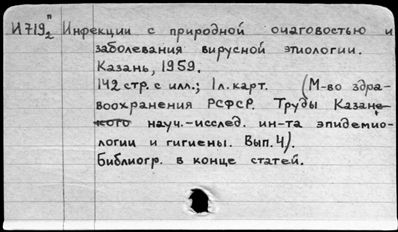 И719₂" Инфекции с природной очаговостью и
заболевания вирусной этиологии.
Казань, 1959.
142 стр. с илл.; 1 л. карт. (М-во здра-
воохранения РСФСР. Труды Казанс
кого науч.-исслед. ин-та эпидемио-
логии и гигиены. Вып. 4).
Библиогр. в конце статей.